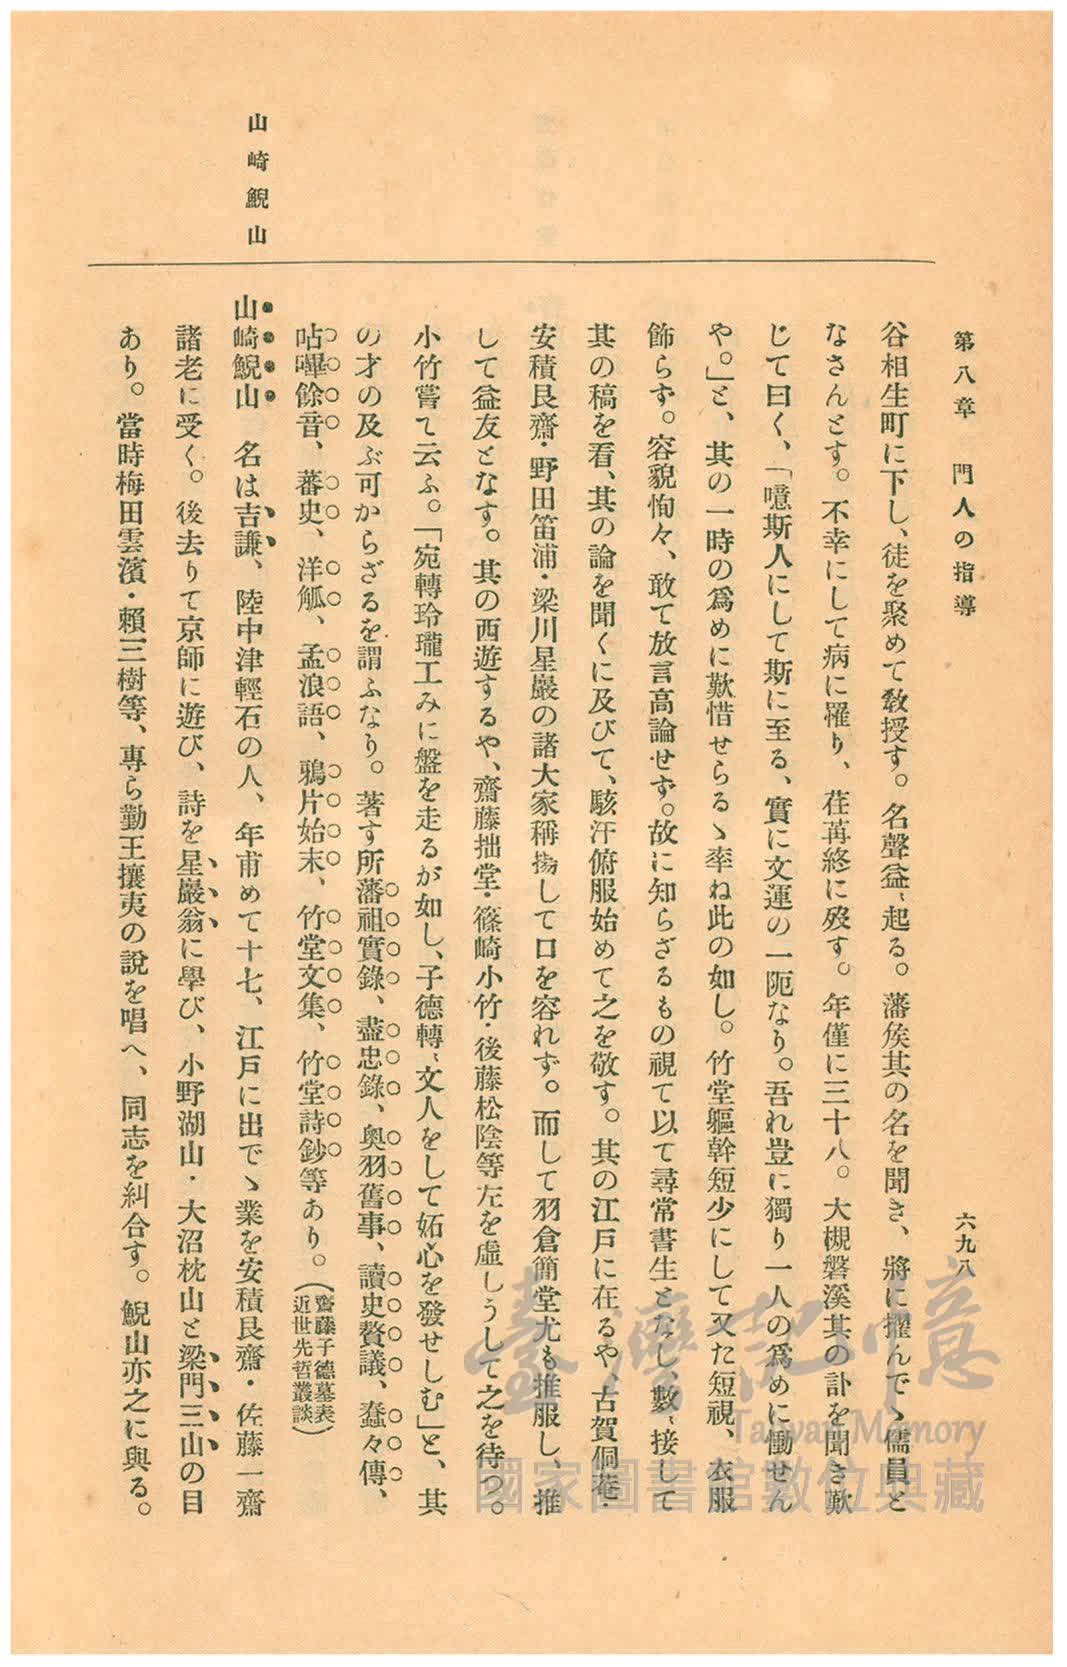 第八章　門人の指導
六九八
谷相生町に下し、徒を聚めて敎授す。名聲益〻起る。藩侯其の名を聞き、將に擢んでゝ儒員と
なさんとす。不幸にして病に罹り、荏苒終に歿す。年僅に三十八。大槻磐溪其の訃を聞き歎
じて曰く、「噫斯人にして斯に至る、實に文運の一阨なり。吾れ豈に獨り一人の爲めに慟せん
や。」と、其の一時の爲めに歎惜せらるゝ率ね此の如し。竹堂軀幹短少にして又た短視、衣服
飾らず。容貌恂々、敢て放言高論せず。故に知らざるもの視て以て尋常書生となし、數〻接して
其の稿を看、其の論を聞くに及びて、駭汗俯服始めて之を敬す。其の江戸に在るや、古賀侗菴・
安積艮齋・野田笛浦・梁川星巖の諸大家稱揚して口を容れず。而して羽倉簡堂尤も推服し、推
して益友となす。其の西遊するや、齋藤拙堂・篠崎小竹・後藤松陰等左を虛しうして之を待つ。
小竹嘗て云ふ。「宛轉玲瓏工みに盤を走るが如し、子德轉〻文人をして妬心を發せしむ」と、其
の才の及ぶ可からざるを謂ふなり。著す所藩祖實錄、盡忠錄、奧羽舊事、讀史贅議、蠢々傳、
呫嗶餘音、蕃史、洋觚、孟浪語、鴉片始末、竹堂文集、竹堂詩鈔等あり。（齋藤子德墓表近世先哲叢談）
山崎鯢山
山崎鯢山　名は吉謙、陸中津輕石の人、年甫めて十七、江戸に出でゝ業を安積艮齋・佐藤一齋
諸老に受く。後去りて京師に遊び、詩を星巖翁に學び、小野湖山・大沼枕山と梁門三山の目
あり。當時梅田雲濱・賴三樹等、專ら勤王攘夷の說を唱へ、同志を糾合す。鯢山亦之に與る。
臺灣記憶
Taiwan Memory
國家圖書館數位典藏